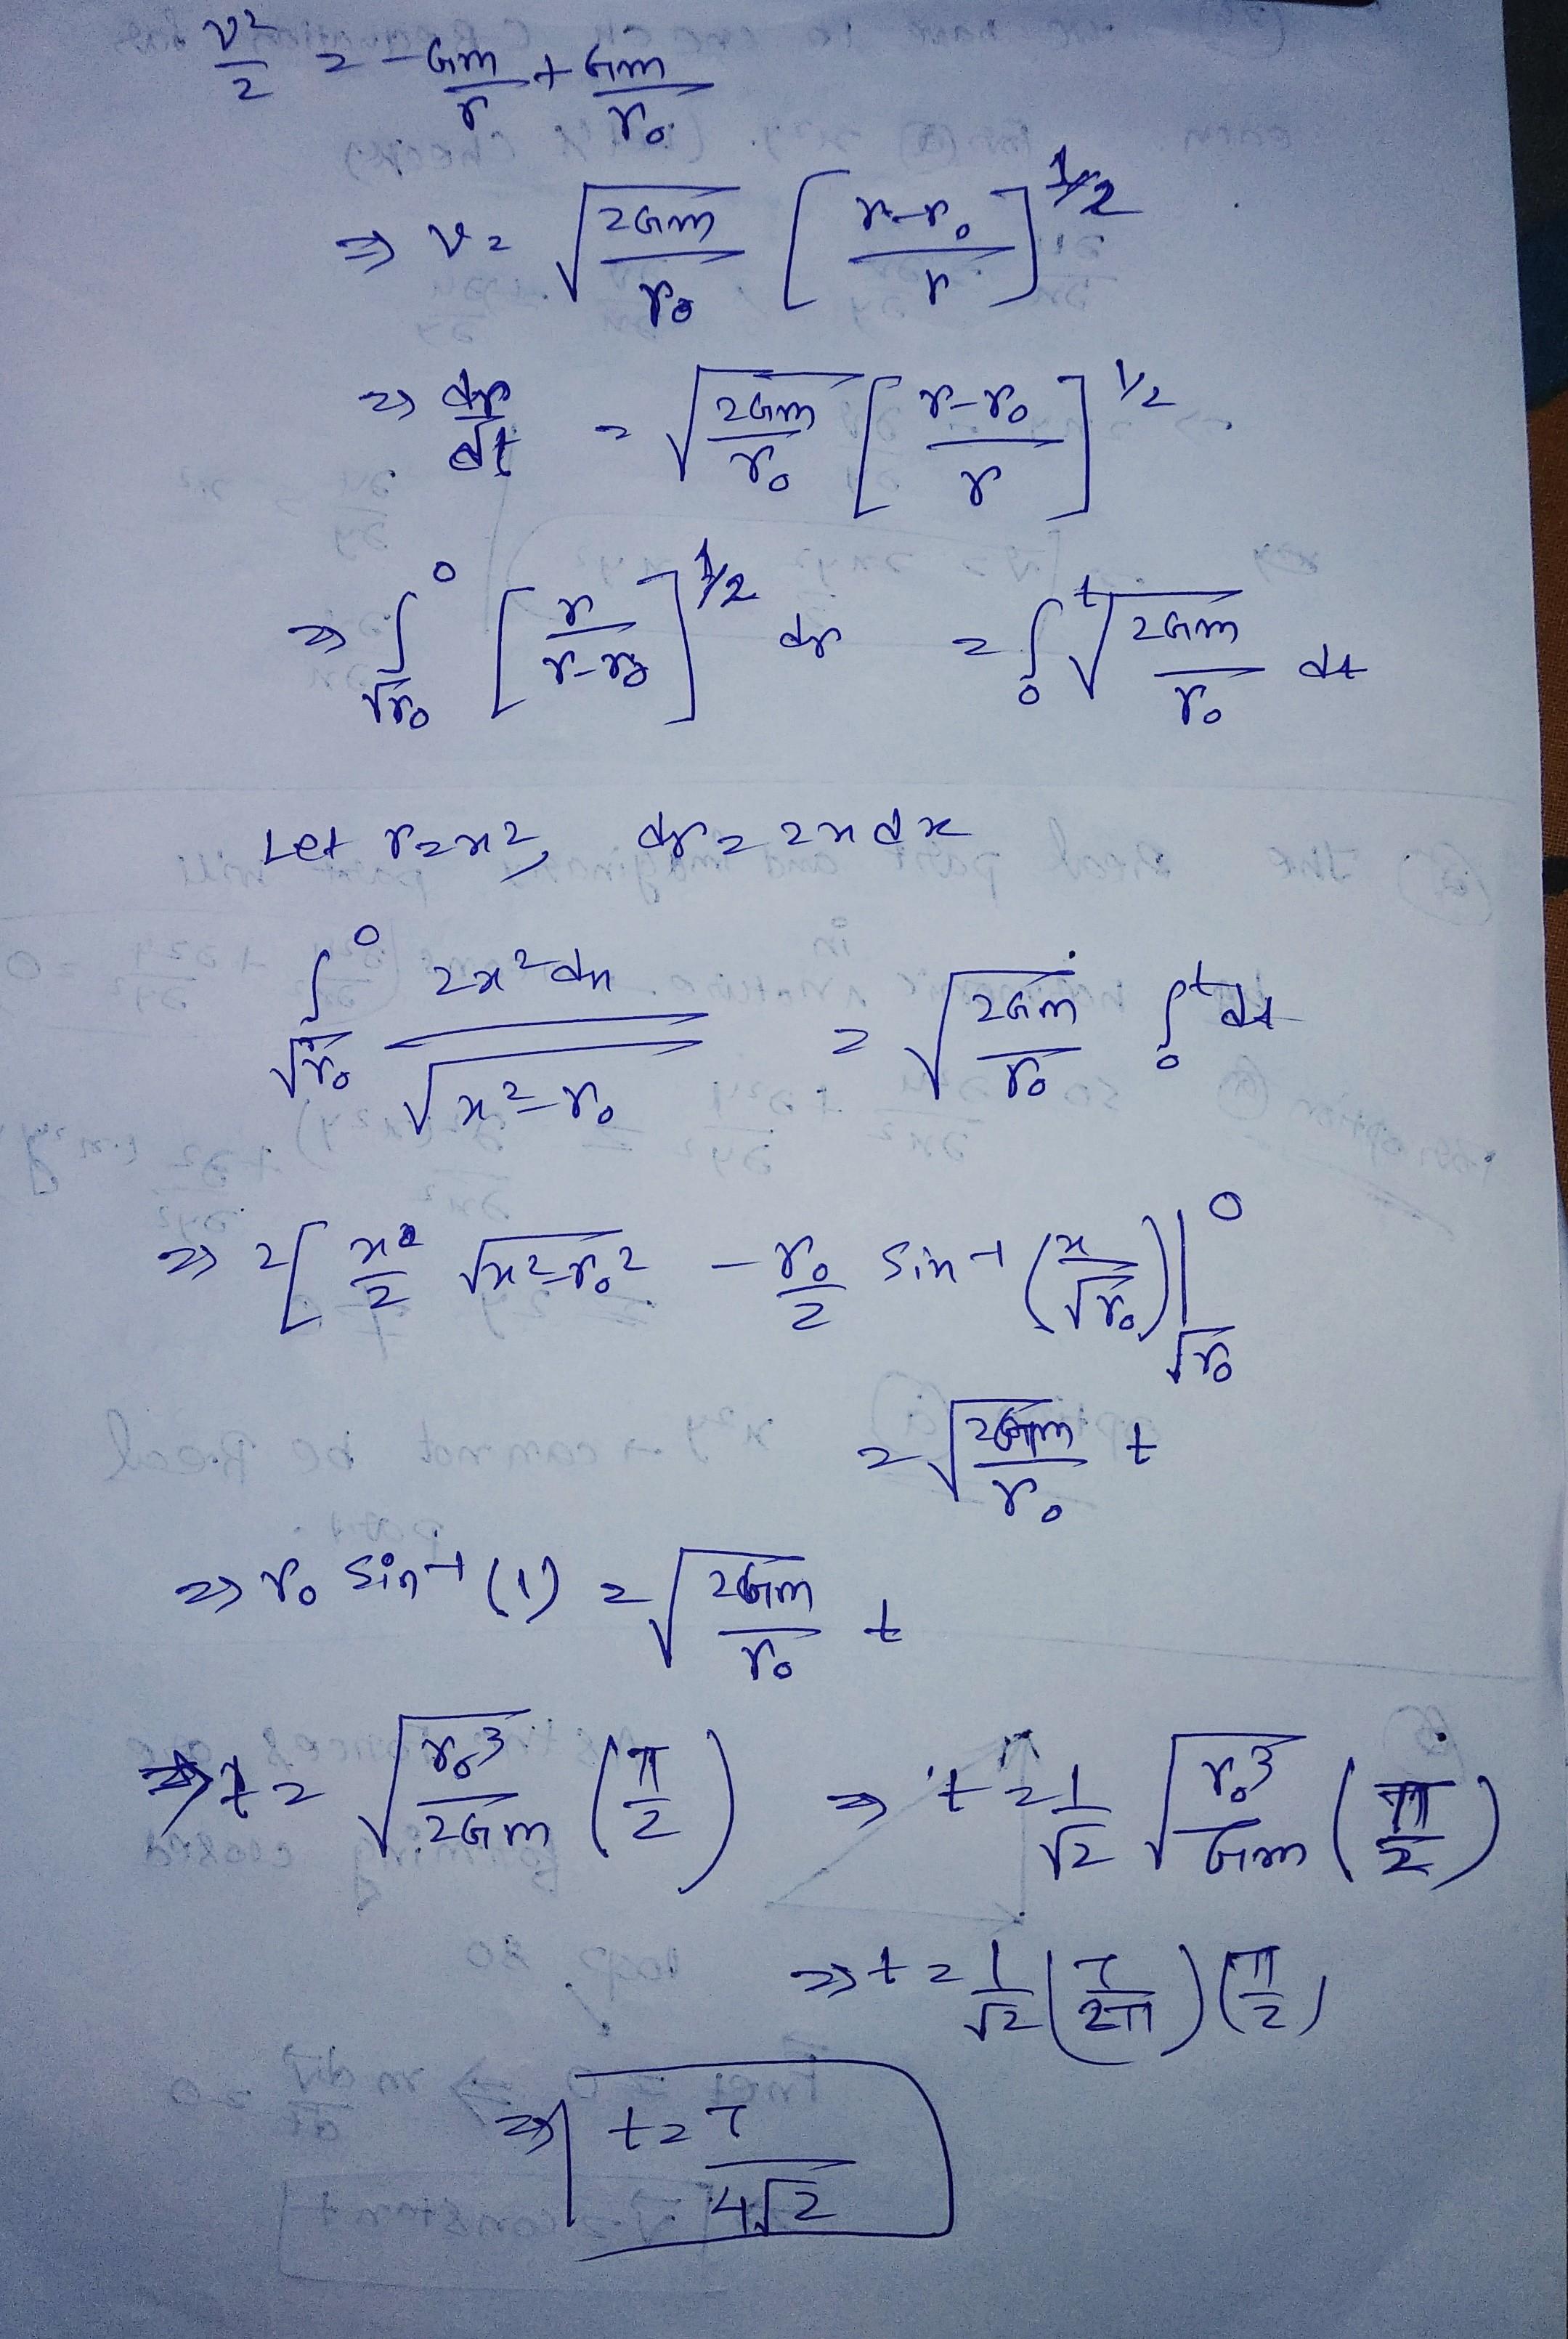 v²/2 = -Gm/r + Gm/r₀
⇒ v = √(2Gm/r₀) [(r-r₀)/r]^1/2
⇒ dr/dt = √(2Gm/r₀) [(r-r₀)/r]^1/2
⇒ ∫_√r₀^0 [r/(r-r₀)]^1/2 dr = ∫_0^t √(2Gm/r₀) dt
Let r=x², dr=2x dx
∫_√r₀^0 2x²dx/√(x²-r₀) = √(2Gm/r₀) ∫_0^t dt
⇒ 2[x/2 √(x²-r₀²) - r₀/2 sin⁻¹(x/√r₀)|_√r₀^0
= √(2Gm/r₀) t
⇒ r₀ sin⁻¹(1) = √(2Gm/r₀) t
⇒ t = √(r₀³/2Gm) (π/2) ⇒ t = 1/√2 √(r₀³/Gm) (π/2)
⇒ t = 1/√2 (T/2π)(π/2)
⇒ t = T/4√2